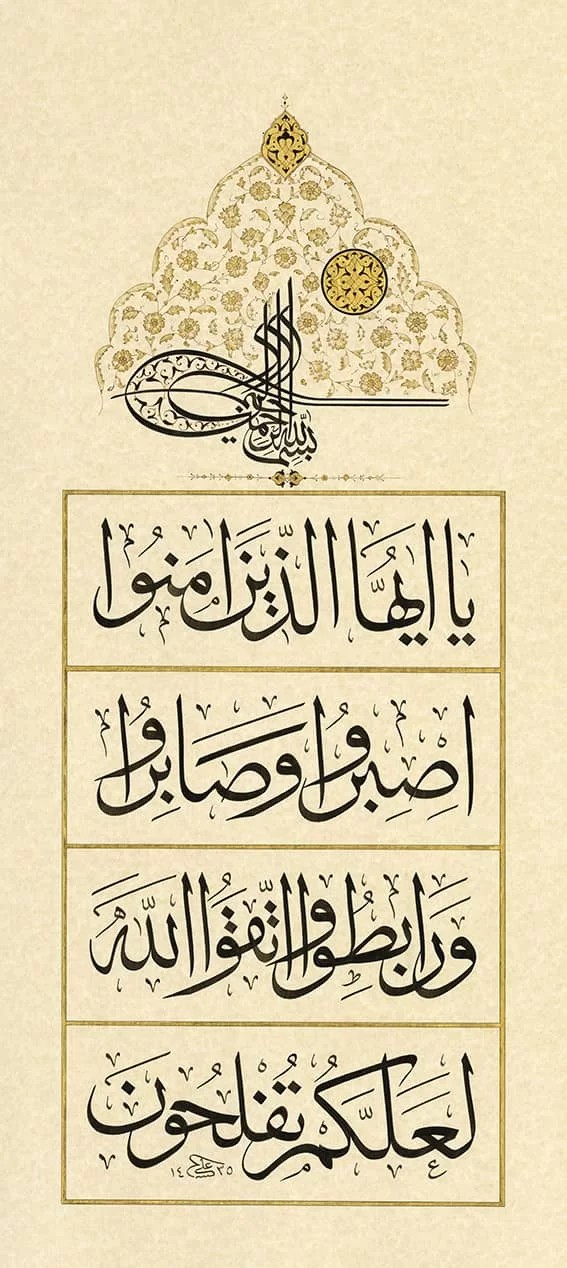 بسم الله الرحمن الرحيم
يا ايها الذين امنوا
اصبروا وصابروا
ورابطوا واتقوا الله
لعلكم تفلحون
علي ١٤٣٥